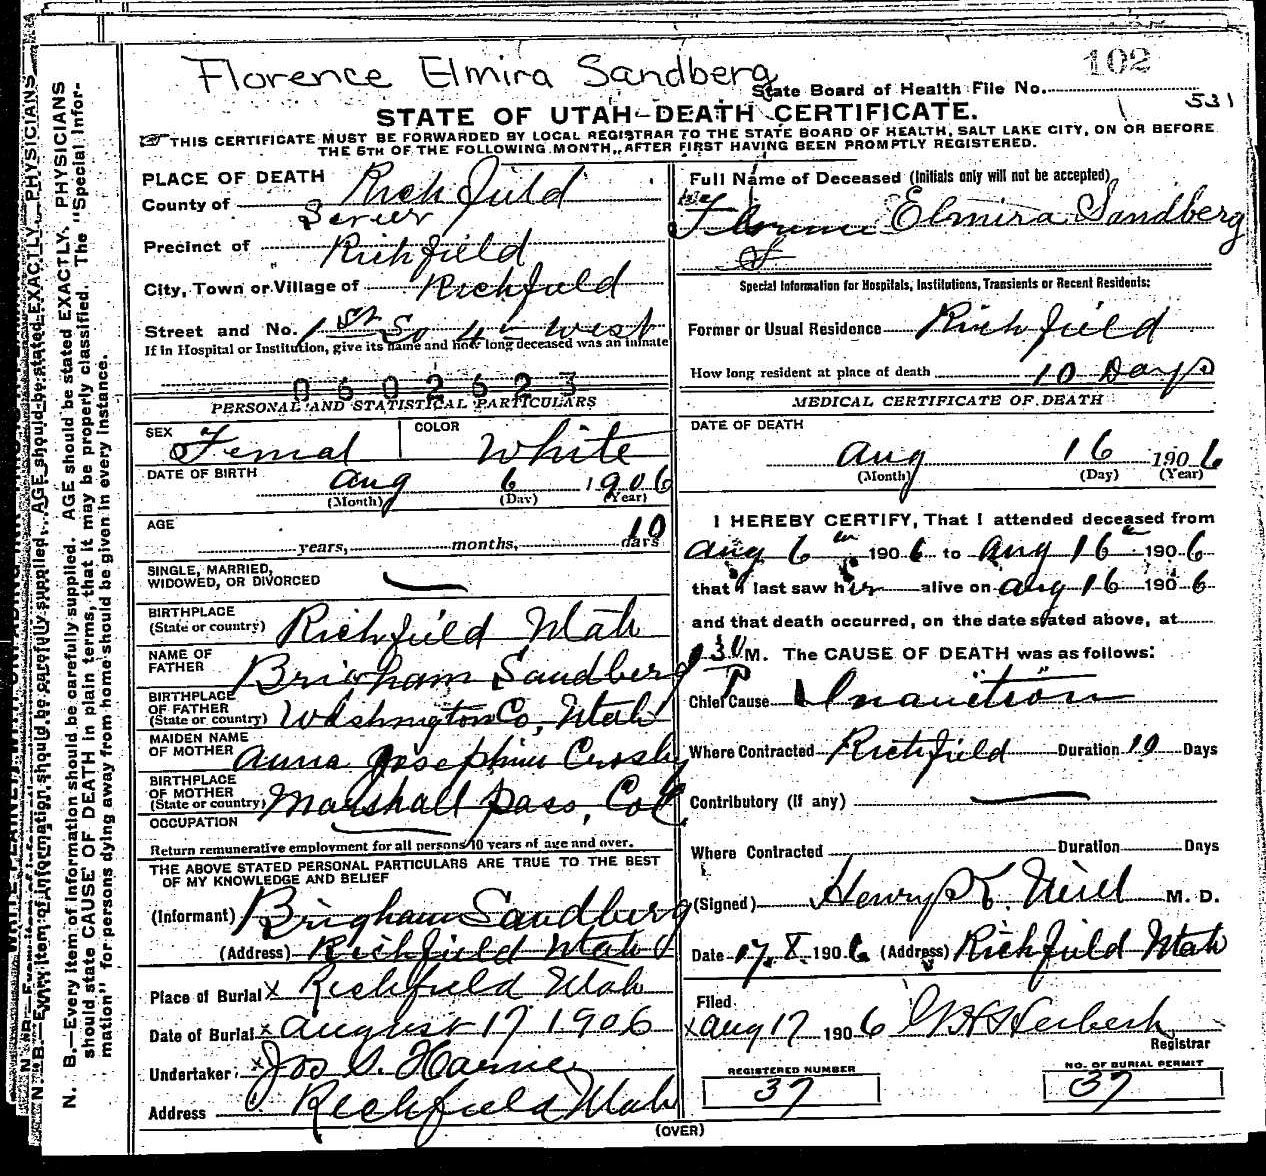 102
Florence Elmira Sandberg
State Board of Health File No.
531
STATE OF UTAH—DEATH CERTIFICATE.
THIS CERTIFICATE MUST BE FORWARDED BY LOCAL REGISTRAR TO THE STATE BOARD OF HEALTH, SALT LAKE CITY, ON OR BEFORE
THE 5TH OF THE FOLLOWING MONTH, AFTER FIRST HAVING BEEN PROMPTLY REGISTERED.
PLACE OF DEATH Richfield
County of Sevier
Precinct of Richfield
City, Town or Village of Richfield
Street and No. 1st So 4th West
If in Hospital or Institution, give its name and how long deceased was an inmate
0602623
PERSONAL AND STATISTICAL PARTICULARS
SEX Femal COLOR White
DATE OF BIRTH Aug 6 1906
(Month) (Day) (Year)
AGE years, months, 10 days
SINGLE, MARRIED,
WIDOWED, OR DIVORCED —
BIRTHPLACE
(State or country) Richfield Utah
NAME OF
FATHER Brigham Sandberg
BIRTHPLACE
OF FATHER
(State or country) Washington Co, Utah
MAIDEN NAME
OF MOTHER Anna Josephine Crosby
BIRTHPLACE
OF MOTHER
(State or country) Marshall Pass, Col
OCCUPATION
Return remunerative employment for all persons 10 years of age and over.
THE ABOVE STATED PERSONAL PARTICULARS ARE TRUE TO THE BEST
OF MY KNOWLEDGE AND BELIEF
(Informant) Brigham Sandberg
(Address) Richfield Utah
Place of Burial x Richfield Utah
Date of Burial x August 17 1906
Undertaker x Jos S.
Address Richfield Utah
Full Name of Deceased (Initials only will not be accepted)
Florence Elmira Sandberg
Special Information for Hospitals, Institutions, Transients or Recent Residents:
Former or Usual Residence Richfield
How long resident at place of death 10 Days
MEDICAL CERTIFICATE OF DEATH
DATE OF DEATH
Aug 16 1906
(Month) (Day) (Year)
I HEREBY CERTIFY, That I attended deceased from
Aug 6th 1906 to Aug 16th 1906
that I last saw her alive on Aug 16 1906
and that death occurred, on the date stated above, at
130 P M. The CAUSE OF DEATH was as follows:
Chief Cause Inanition
Where Contracted Richfield Duration 10 Days
Contributory (if any) —
Where Contracted Duration Days
(Signed) Henry K. Neill M. D.
Date 17. 8. 1906 (Address) Richfield Utah
Filed
x Aug 17 1906
Registrar
REGISTERED NUMBER
37
NO. OF BURIAL PERMIT
37
(OVER)
N. B.—Every item of information should be carefully supplied. AGE should be stated EXACTLY. PHYSICIANS
should state CAUSE OF DEATH in plain terms, that it may be properly classified. The "Special Infor-
mation" for persons dying away from home should be given in every instance.